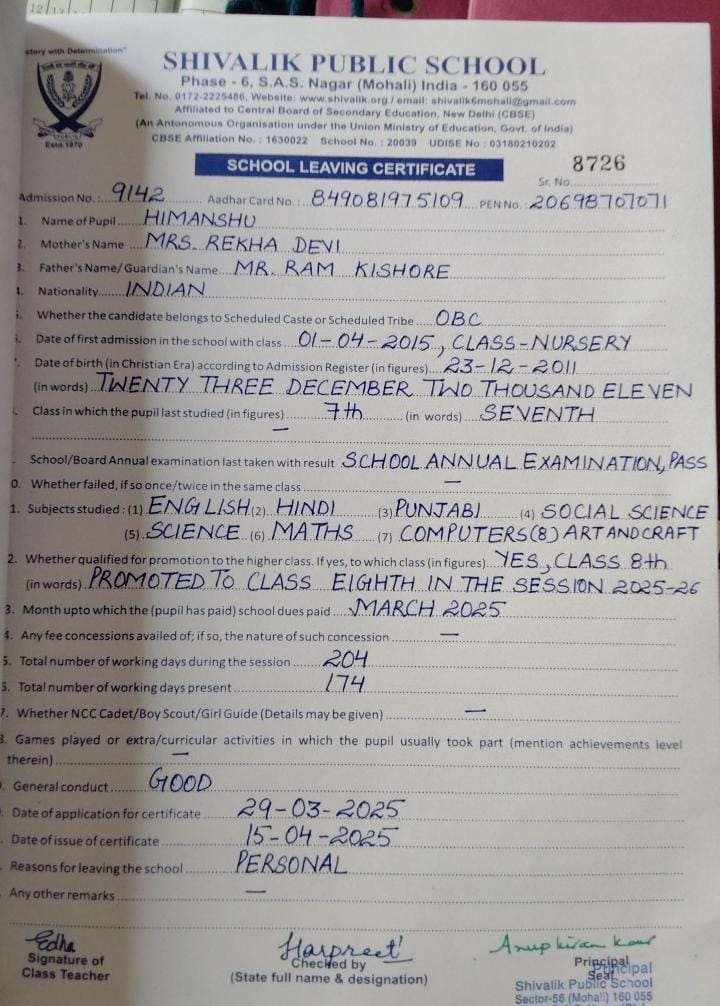 12/12
story with Determination"
Estd.1970
SHIVALIK PUBLIC SCHOOL
Phase - 6, S.A.S. Nagar (Mohali) India - 160 055
Tel. No. 0172-2225486, Website: www.shivalik.org / email: shivalik6mohali@gmail.com
Affiliated to Central Board of Secondary Education, New Delhi (CBSE)
(An Antonomous Organisation under the Union Ministry of Education, Govt. of India)
CBSE Affiliation No. : 1630022 School No. : 20039 UDISE No : 03180210202
SCHOOL LEAVING CERTIFICATE
8726
Sr. No.
Admission No.: 9142 Aadhar Card No.: 849081975109 PEN No.: 20698707071
1. Name of Pupil HIMANSHU
2. Mother's Name MRS. REKHA DEVI
3. Father's Name/Guardian's Name MR. RAM KISHORE
4. Nationality INDIAN
Whether the candidate belongs to Scheduled Caste or Scheduled Tribe OBC
Date of first admission in the school with class 01-04-2015, CLASS-NURSERY
Date of birth (in Christian Era) according to Admission Register (in figures) 23-12-2011
(in words) TWENTY THREE DECEMBER TWO THOUSAND ELEVEN
Class in which the pupil last studied (in figures) 7th (in words) SEVENTH
—
School/Board Annual examination last taken with result SCHOOL ANNUAL EXAMINATION, PASS
0. Whether failed, if so once/twice in the same class —
1. Subjects studied : (1) ENGLISH (2) HINDI (3) PUNJABI (4) SOCIAL SCIENCE
(5) SCIENCE (6) MATHS (7) COMPUTERS (8) ART AND CRAFT
2. Whether qualified for promotion to the higher class. If yes, to which class (in figures) YES, CLASS 8th
(in words) PROMOTED TO CLASS EIGHTH IN THE SESSION 2025-26
3. Month upto which the (pupil has paid) school dues paid MARCH 2025
4. Any fee concessions availed of; if so, the nature of such concession —
5. Total number of working days during the session 204
6. Total number of working days present 174
7. Whether NCC Cadet/Boy Scout/Girl Guide (Details may be given) —
8. Games played or extra/curricular activities in which the pupil usually took part (mention achievements level
therein) —
General conduct GOOD
Date of application for certificate 29-03-2025
Date of issue of certificate 15-04-2025
Reasons for leaving the school PERSONAL
Any other remarks —
Edha Harpreet Anupkiran Kaur
Signature of Checked by Principal
Class Teacher (State full name & designation) Seal
Principal
Shivalik Public School
Sector-56 (Mohali) 160 055